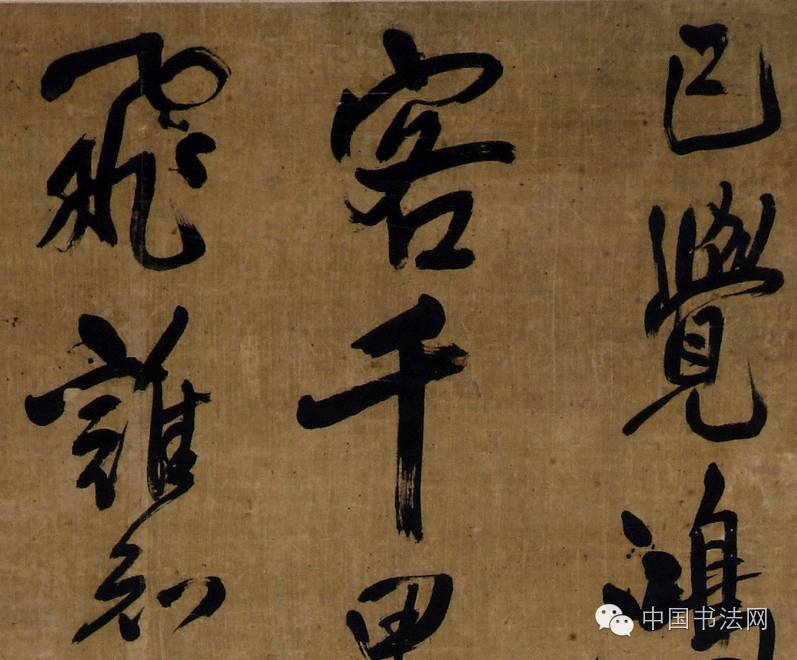 已覺鴻
客千里
飛誰知
中国书法网